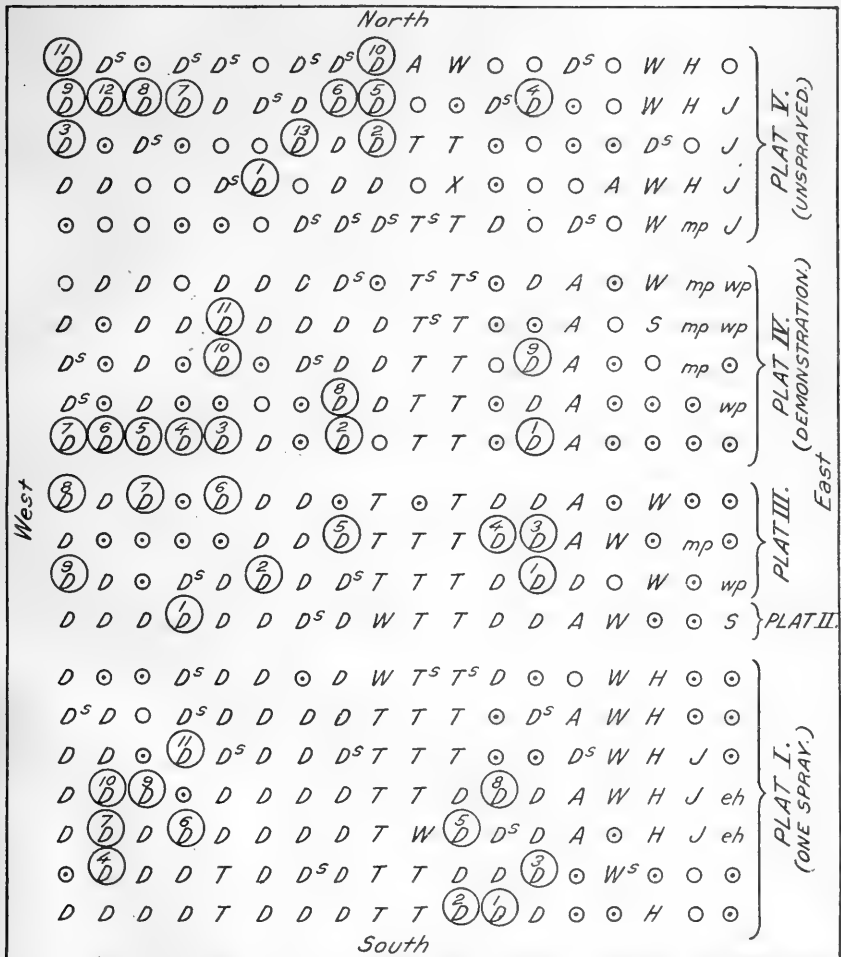 North
⑪D Dˢ ⊙ Dˢ Dˢ ○ Dˢ Dˢ ⑩D A W ○ ○ Dˢ ○ W H ○
⑨D ⑫D ⑧D ⑦D D Dˢ D ⑥D ⑤D ○ ⊙ Dˢ ④D ⊙ ○ W H J
③D ⊙ Dˢ ⊙ ○ ○ ⑬D D ②D T T ⊙ ○ ⊙ ⊙ Dˢ ○ J
D D ○ ○ Dˢ ①D ○ D D ○ X ⊙ ○ ○ A W H J
⊙ ○ ○ ⊙ ⊙ ○ Dˢ Dˢ Dˢ Tˢ T D ○ Dˢ ○ W mp J
PLAT V.
(UNSPRAYED.)
○ D D ○ D D D D Dˢ ⊙ Tˢ Tˢ ⊙ D A ⊙ W mp wp
D ⊙ D D ⑪D D D D D Tˢ T ⊙ ⊙ A ○ S mp wp
Dˢ ⊙ D ⊙ ⑩D ⊙ Dˢ D D T T ○ ⑨D A ⊙ ○ mp ⊙
Dˢ ⊙ D ⊙ ⊙ ○ ⊙ ⑧D D T T ⊙ D A ⊙ ⊙ ⊙ wp
⑦D ⑥D ⑤D ④D ③D D ⊙ ②D ○ T T ⊙ ①D A ⊙ ⊙ ⊙ ⊙
PLAT IV.
(DEMONSTRATION.)
West
East
⑧D D ⑦D ⊙ ⑥D D D ⊙ T ⊙ T D D A ⊙ W ⊙ ⊙
D ⊙ ⊙ ⊙ ⊙ D D ⑤D T T T ④D ③D A W ⊙ mp ⊙
⑨D D ⊙ Dˢ D ②D D Dˢ T T T D ①D D ○ W ⊙ wp
PLAT III.
D D D ①D D D Dˢ D W T T D D A W ⊙ ⊙ S
PLAT II.
D ⊙ ⊙ Dˢ D D ⊙ D W Tˢ Tˢ D ⊙ ○ W H ⊙ ⊙
Dˢ D ○ Dˢ D D D D T T T ⊙ Dˢ A W H ⊙ ⊙
D D ⊙ ⑪D Dˢ D D Dˢ T T T ⊙ ⊙ Dˢ W H J ⊙
D ⑩D ⑨D ⊙ D D D D T T D ⑧D D A W H J eh
D ⑦D D ⑥D D D D D T W ⑤D Dˢ D A ⊙ H J eh
⊙ ④D D D T D Dˢ D T T D D ③D ⊙ Wˢ ⊙ ○ ⊙
D D D D T D D D T T ②D ①D D ⊙ ⊙ H ○ ⊙
PLAT I.
(ONE SPRAY.)
South